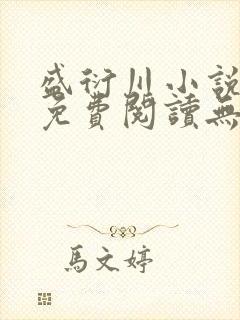 盛衍川小說
免費閱讀無
馬文婷